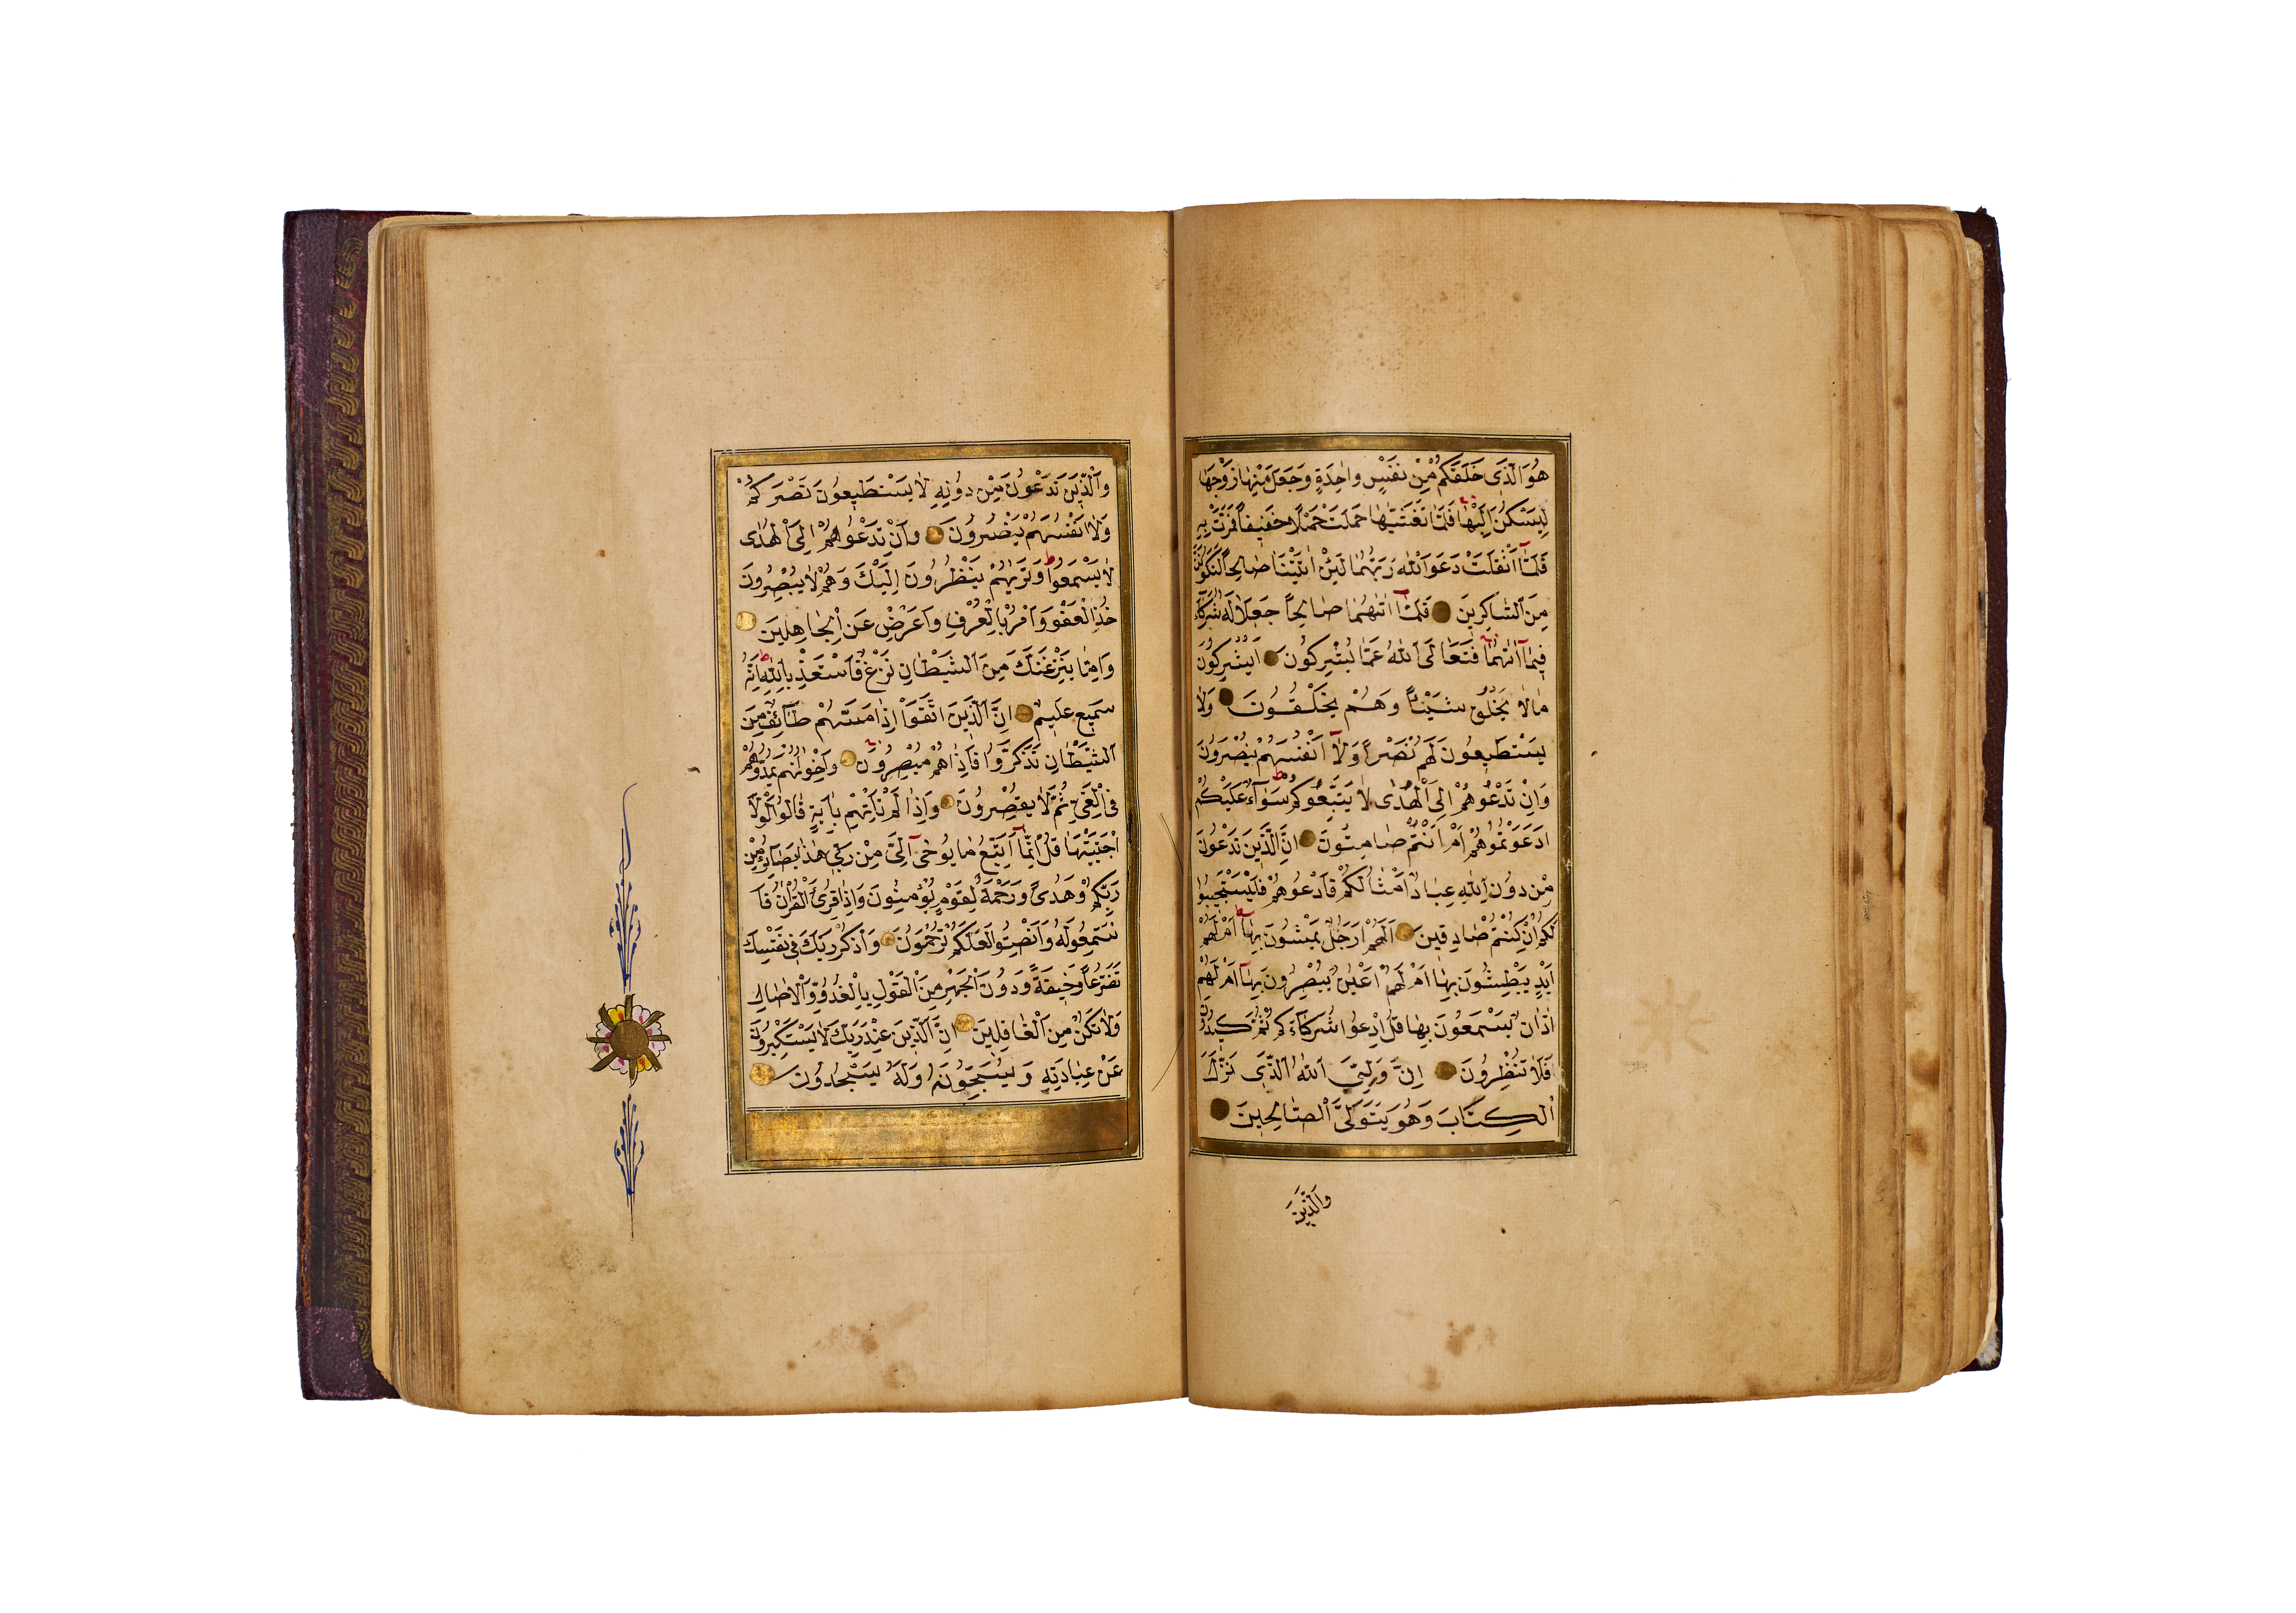 هُوَ الَّذِي خَلَقَكُمْ مِنْ نَفْسٍ وَاحِدَةٍ وَجَعَلَ مِنْهَا زَوْجَهَا
لِيَسْكُنَ اِلَيْهَا فَلَمَّا تَغَشّٰيهَا حَمَلَتْ حَمْلًا خَفِيفًا فَمَرَّتْ بِهِ
فَلَمَّا اَثْقَلَتْ دَعَوَا اللّٰهَ رَبَّهُمَا لَئِنْ اٰتَيْتَنَا صَالِحًا لَنَكُونَنَّ
مِنَ الشَّاكِرِينَ فَلَمَّا اٰتٰهُمَا صَالِحًا جَعَلَا لَهُ شُرَكَاءَ
فِيمَا اٰتٰهُمَا فَتَعَالَى اللّٰهُ عَمَّا يُشْرِكُونَ اَيُشْرِكُونَ
مَا لَا يَخْلُقُ شَيْئًا وَهُمْ يُخْلَقُونَ وَلَا
يَسْتَطِيعُونَ لَهُمْ نَصْرًا وَلَا اَنْفُسَهُمْ يَنْصُرُونَ
وَاِنْ تَدْعُوهُمْ اِلَى الْهُدٰى لَا يَتَّبِعُوكُمْ سَوَاءٌ عَلَيْكُمْ
اَدَعَوْتُمُوهُمْ اَمْ اَنْتُمْ صَامِتُونَ اِنَّ الَّذِينَ تَدْعُونَ
مِنْ دُونِ اللّٰهِ عِبَادٌ اَمْثَالُكُمْ فَادْعُوهُمْ فَلْيَسْتَجِيبُوا
لَكُمْ اِنْ كُنْتُمْ صَادِقِينَ اَلَهُمْ اَرْجُلٌ يَمْشُونَ بِهَا اَمْ لَهُمْ
اَيْدٍ يَبْطِشُونَ بِهَا اَمْ لَهُمْ اَعْيُنٌ يُبْصِرُونَ بِهَا اَمْ لَهُمْ
اٰذَانٌ يَسْمَعُونَ بِهَا قُلِ ادْعُوا شُرَكَاءَكُمْ ثُمَّ كِيدُونِ
فَلَا تُنْظِرُونَ اِنَّ وَلِيِّيَ اللّٰهُ الَّذِي نَزَّلَ
الْكِتَابَ وَهُوَ يَتَوَلَّى الصَّالِحِينَ
وَالَّذِينَ
وَالَّذِينَ تَدْعُونَ مِنْ دُونِهِ لَا يَسْتَطِيعُونَ نَصْرَكُمْ
وَلَا اَنْفُسَهُمْ يَنْصُرُونَ وَاِنْ تَدْعُوهُمْ اِلَى الْهُدٰى
لَا يَسْمَعُوا وَتَرٰيهُمْ يَنْظُرُونَ اِلَيْكَ وَهُمْ لَا يُبْصِرُونَ
خُذِ الْعَفْوَ وَاْمُرْ بِالْعُرْفِ وَاَعْرِضْ عَنِ الْجَاهِلِينَ
وَاِمَّا يَنْزَغَنَّكَ مِنَ الشَّيْطَانِ نَزْغٌ فَاسْتَعِذْ بِاللّٰهِ اِنَّهُ
سَمِيعٌ عَلِيمٌ اِنَّ الَّذِينَ اتَّقَوْا اِذَا مَسَّهُمْ طَائِفٌ مِنَ
الشَّيْطَانِ تَذَكَّرُوا فَاِذَا هُمْ مُبْصِرُونَ وَاِخْوَانُهُمْ يَمُدُّونَهُمْ
فِي الْغَيِّ ثُمَّ لَا يُقْصِرُونَ وَاِذَا لَمْ تَاْتِهِمْ بِاٰيَةٍ قَالُوا لَوْلَا
اجْتَبَيْتَهَا قُلْ اِنَّمَا اَتَّبِعُ مَا يُوحٰى اِلَيَّ مِنْ رَبِّي هٰذَا بَصَائِرُ مِنْ
رَبِّكُمْ وَهُدًى وَرَحْمَةٌ لِقَوْمٍ يُؤْمِنُونَ وَاِذَا قُرِئَ الْقُرْاٰنُ فَا
سْتَمِعُوا لَهُ وَاَنْصِتُوا لَعَلَّكُمْ تُرْحَمُونَ وَاذْكُرْ رَبَّكَ فِي نَفْسِكَ
تَضَرُّعًا وَخِيفَةً وَدُونَ الْجَهْرِ مِنَ الْقَوْلِ بِالْغُدُوِّ وَالْاٰصَالِ
وَلَا تَكُنْ مِنَ الْغَافِلِينَ اِنَّ الَّذِينَ عِنْدَ رَبِّكَ لَا يَسْتَكْبِرُونَ
عَنْ عِبَادَتِهِ وَيُسَبِّحُونَهُ وَلَهُ يَسْجُدُونَ